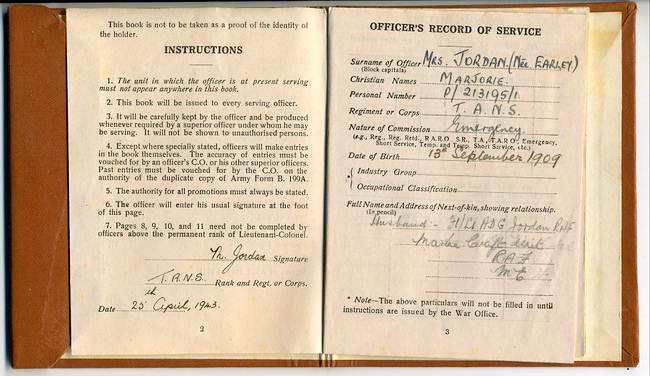 This book is not to be taken as a proof of the identity of
the holder.
INSTRUCTIONS
1. The unit in which the officer is at present serving
must not appear anywhere in this book.
2. This book will be issued to every serving officer.
3. It will be carefully kept by the officer and be produced
whenever required by a superior officer under whom he may
be serving. It will not be shown to unauthorised persons.
4. Except where specially stated, officers will make entries
in the book themselves. The accuracy of entries must be
vouched for by an officer's C.O. or his other superior officers.
Past entries must be vouched for by the C.O. on the
authority of the duplicate copy of Army Form B. 199A.
5. The authority for all promotions must always be stated.
6. The officer will enter his usual signature at the foot
of this page.
7. Pages 8, 9, 10, and 11 need not be completed by
officers above the permanent rank of Lieutenant-Colonel.
M. Jordan Signature
T.A.N.S. Rank and Regt. or Corps.
Date 25th April, 1943.
2
OFFICER'S RECORD OF SERVICE
Surname of Officer MRS. JORDAN. (Nee EARLEY)
(Block capitals)
Christian Names MARJORIE.
Personal Number P/213195/1.
Regiment or Corps T.A.N.S.
Nature of Commission Emergency
(e.g., Reg., Reg. Retd., R.A.R.O., S.R., T.A., T.A.R.O., Emergency,
Short Service, Temp. and Temp. Short Service, etc.)
Date of Birth 13th September 1909
* Industry Group
Occupational Classification
Full Name and Address of Next-of-kin, showing relationship.
(In pencil)
Husband:- F/Lt A D G Jordan RAF
Marine Craft Unit
R.A.F
M.E
* Note—The above particulars will not be filled in until
instructions are issued by the War Office.
3